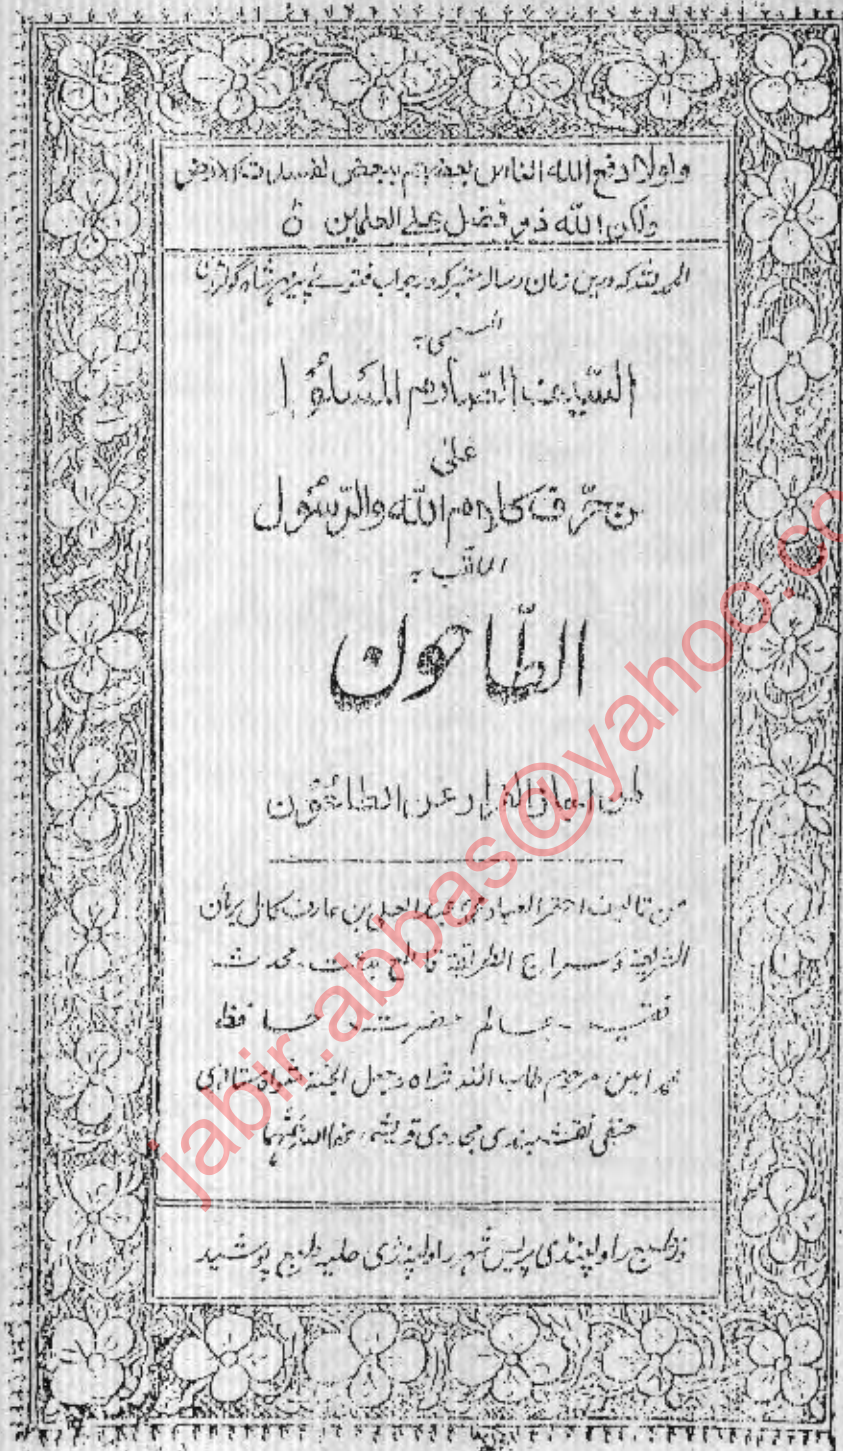 ولولا دفع الله الناس بعضهم ببعض لفسدت الارض
ولكن الله ذو فضل علی العلمین
الحمد للہ کہ درین زمان رسالہ متبرکہ در جواب فتوے پیر مہر شاہ گولڑی
المسمی بہ
السیف الصارم المسلول
علی
من حرّف کلام اللہ والرّسُول
الملقب بہ
الطّاحون
لمن الفرار عن الطاعون
من تالیف احقر العباد محمد عبد بن عارف کامل برہان
الشریعۃ و سراج الطریقۃ قامع بدعت محدث
فقیہ عالم حضرت حافظ
محمد امین مرحوم طاب اللہ ثراہ وجعل الجنۃ مثواہ
حنفی نقشبندی مجددی قریشی
در مطبع راولپنڈی پریس شہر راولپنڈی حلیہ طبع پوشید
jabir.abbas@yahoo.co